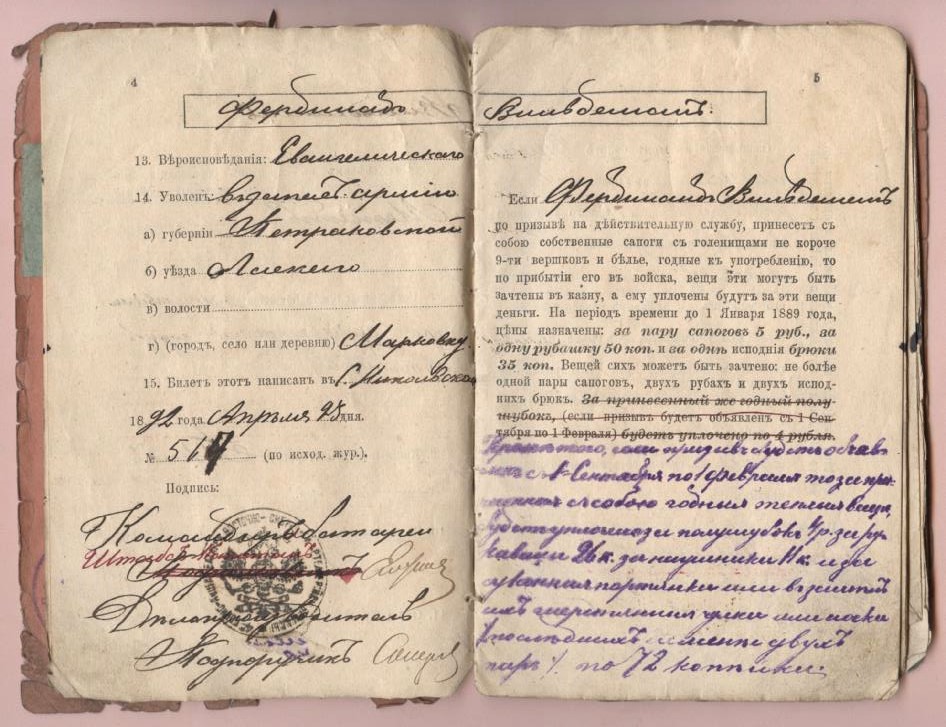 4
Фердинандъ
13. Вѣроисповѣданія: Евангелическаго
14. Уволенъ: въ запасъ арміи
а) губерніи Петроковской
б) уѣзда
в) волости
г) (городъ, село или деревню)
15. Билетъ этотъ написанъ въ с. Никольском
1892 года Апрѣля 25 дня.
№ 517 (по исход. жур.).
Подпись:
Командиръ батареи
Штабсъ-Капитанъ
Дѣлопроизводитель
Подпоручикъ
5
Вильдеманъ.
Если Фердинандъ Вильдеманъ
по призывѣ на дѣйствительную службу, принесетъ съ
собою собственные сапоги съ голенищами не короче
9-ти вершковъ и бѣлье, годныя къ употребленію, то
по прибытіи его въ войска, вещи эти могутъ быть
зачтены въ казну, а ему уплочены будутъ за эти вещи
деньги. На періодъ времени до 1 Января 1889 года,
цѣны назначены: за пару сапоговъ 5 руб., за
одну рубашку 50 коп. и за однѣ исподнія брюки
35 коп. Вещей сихъ можетъ быть зачтено: не болѣе
одной пары сапоговъ, двухъ рубахъ и двухъ испод-
нихъ брюкъ. За принесенный же годный полу-
шубокъ, (если призывъ будетъ объявленъ съ 1 Сен-
тября по 1 Февраля) будетъ уплочено по 4 рубля.
Кромѣ того, если призывъ будетъ объяв-
ленъ съ 1 Сентября по 1 Февраля то за при-
несенныя съ собою годныя теплыя вещи,
будетъ уплочено за полушубокъ 4 р. за ру-
кавицы 26 к. за наушники 11 к. и за
суконныя портянки или взамѣнъ
ихъ шерстяныя чулки или носки
послѣднихъ не менѣе двухъ
паръ) по 72 копѣйки.